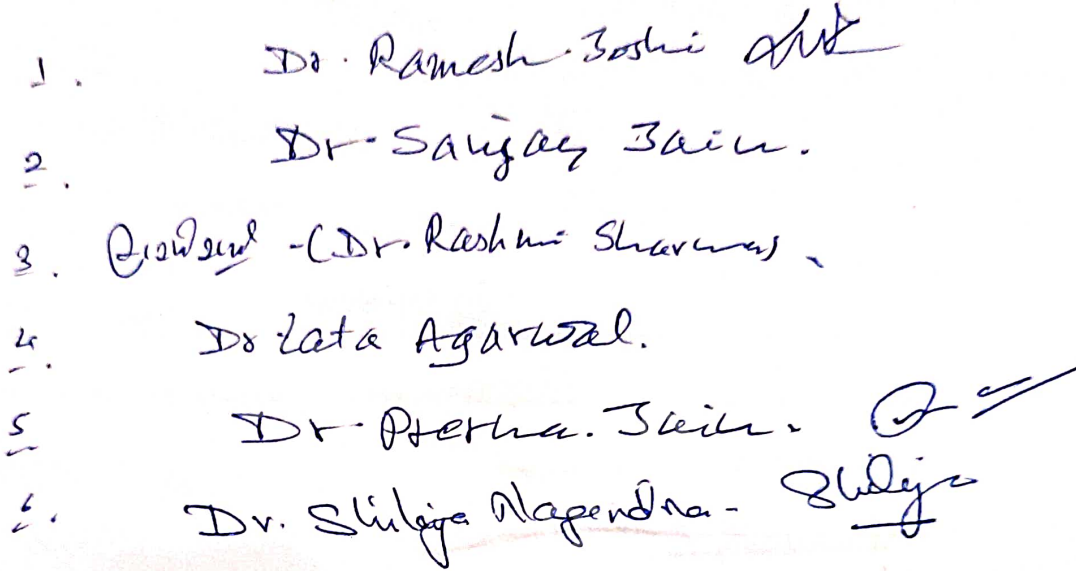 1. Dr. Ramesh Joshi
2. Dr. Sanjay Jain.
3. (Dr. Rashmi Sharma)
4. Dr Lata Agarwal.
5 Dr. Prerna. Jain.
6. Dr. Shilaja Nagendra - Shilaja